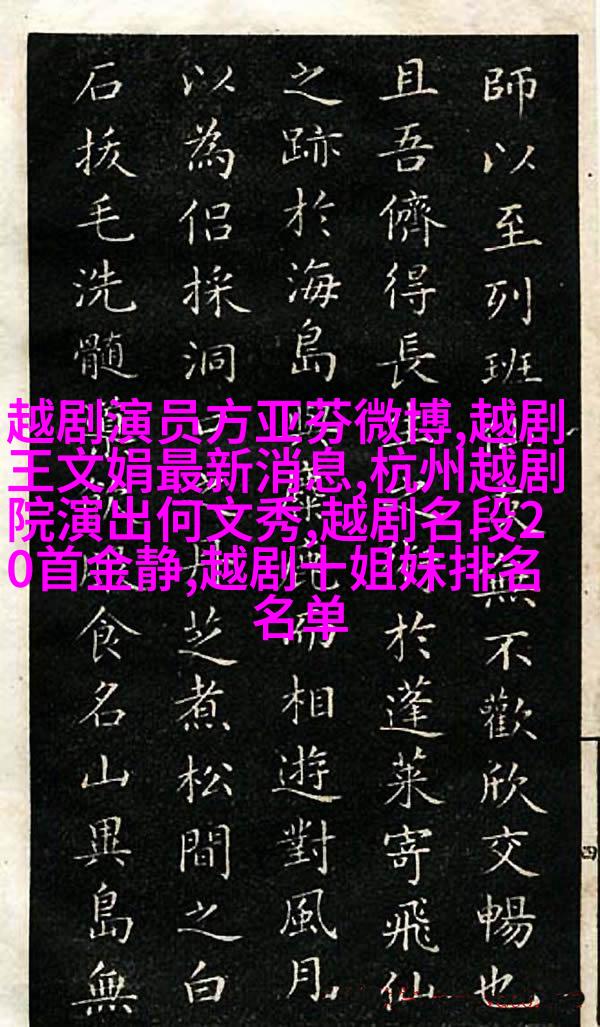 師以至列班無不歡欣交暢也
且吾儕得長於蓬萊寄飛仙
之跡於海島相遊對風月
以為侶採洞芝煮松間之白
石拔毛洗髓食名山異島無
越剧演员方亚芬微博,越剧
王文娟最新消息,杭州越剧
院演出何文秀,越剧名段2
0首金静,越剧十姐妹排名
名单